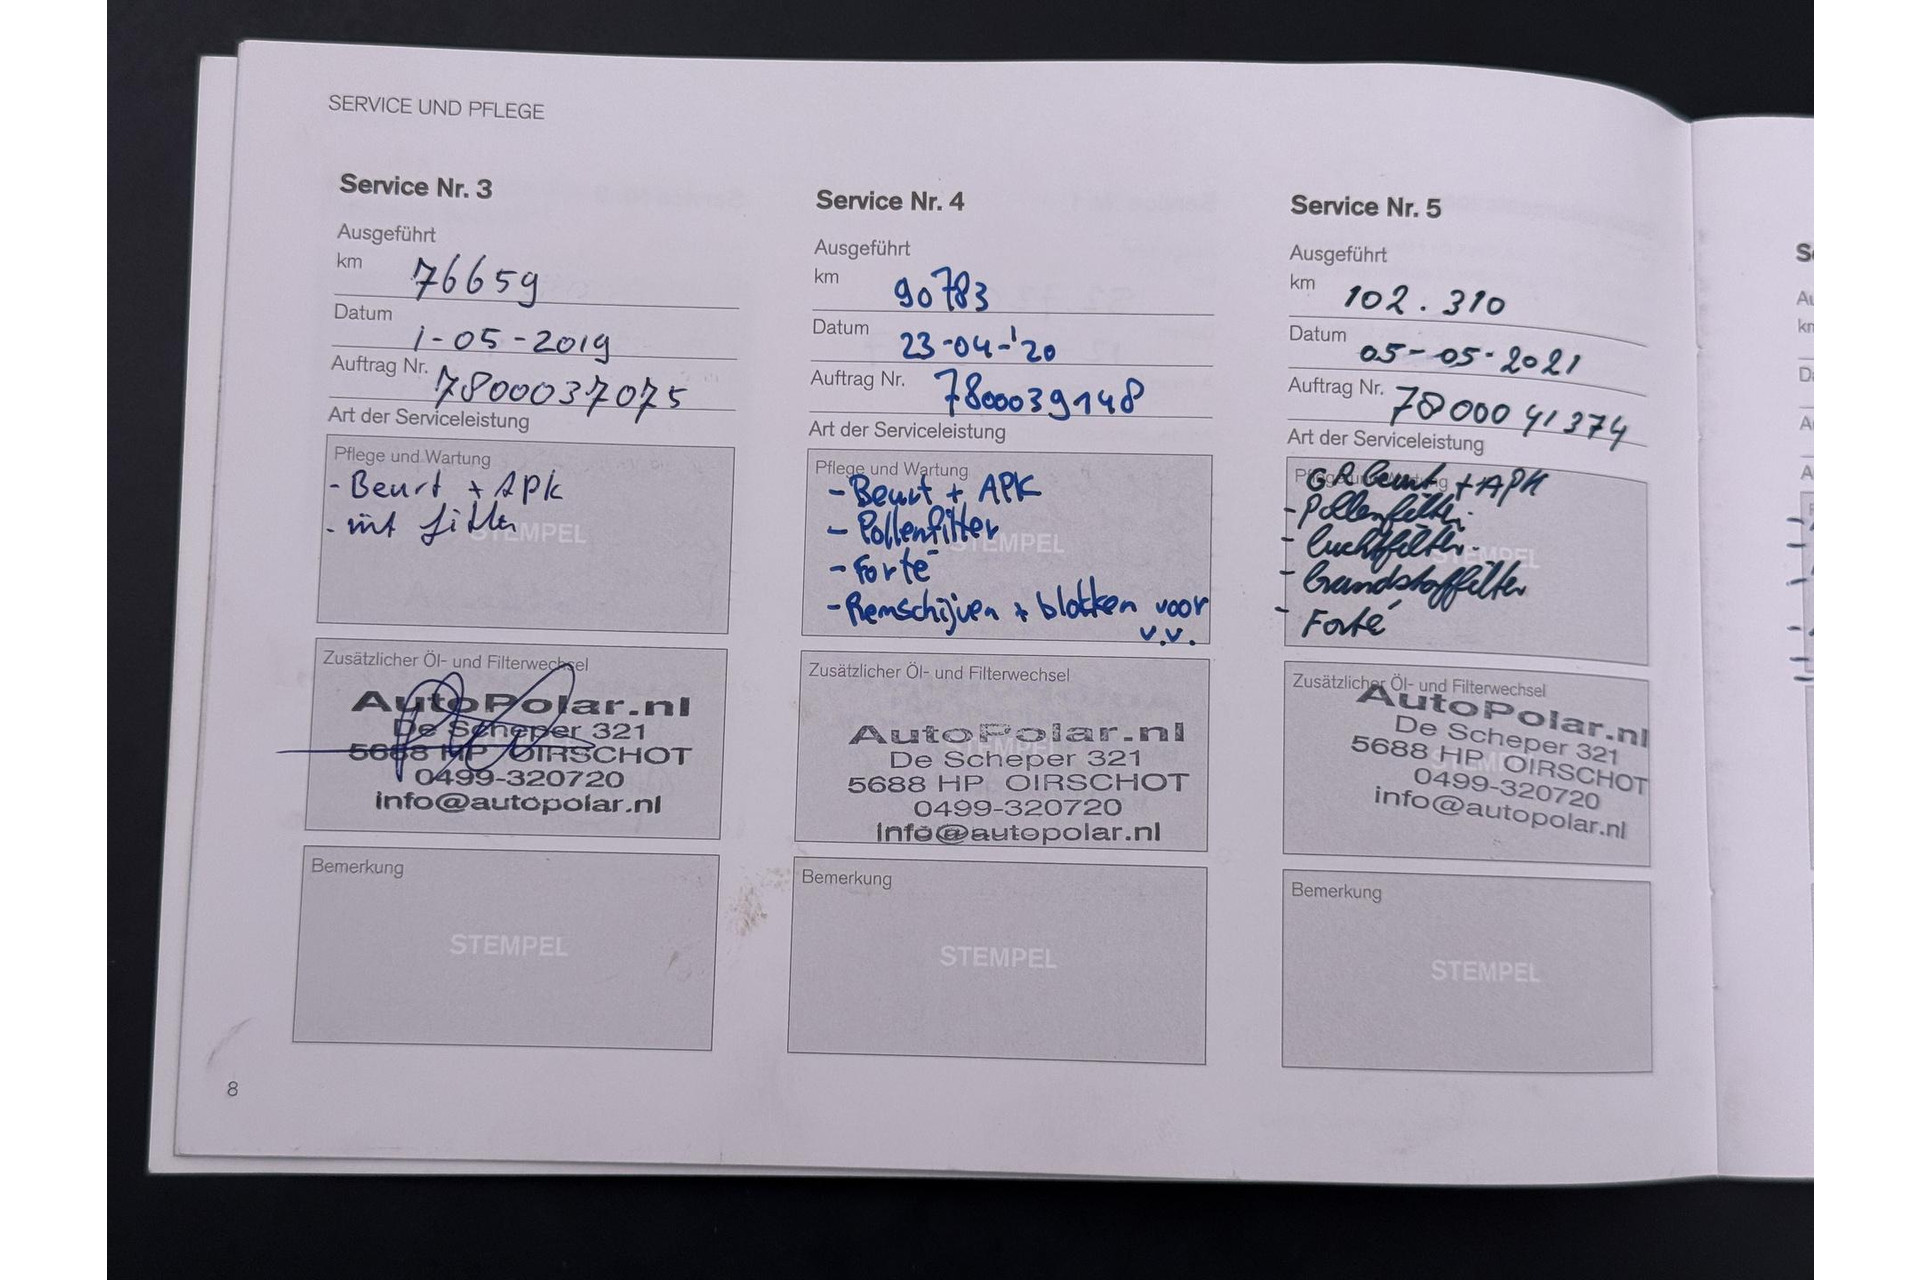 SERVICE UND PFLEGE
Service Nr. 3
Ausgeführt
km 76659
Datum 1-05-2019
Auftrag Nr. 7800037075
Art der Serviceleistung
Pflege und Wartung
- Beurt + APK
- int filter
STEMPEL
Zusätzlicher Öl- und Filterwechsel
AutoPolar.nl
De Scheper 321
5688 HP OIRSCHOT
0499-320720
info@autopolar.nl
Bemerkung
STEMPEL
Service Nr. 4
Ausgeführt
km 90783
Datum 23-04-'20
Auftrag Nr. 7800039148
Art der Serviceleistung
Pflege und Wartung
- Beurt + APK
- Pollenfilter
STEMPEL
- Forté
- Remschijven + blokken voor
v.v.
Zusätzlicher Öl- und Filterwechsel
AutoPolar.nl
STEMPEL
De Scheper 321
5688 HP OIRSCHOT
0499-320720
info@autopolar.nl
Bemerkung
STEMPEL
Service Nr. 5
Ausgeführt
km 102.310
Datum 05-05-2021
Auftrag Nr. 7800041374
Art der Serviceleistung
Pflege und Wartung
GR beurt + APK
- Pollenfilter
- Luchtfilter
STEMPEL
- Brandstoffilter
- Forté
Zusätzlicher Öl- und Filterwechsel
AutoPolar.nl
De Scheper 321
5688 HP OIRSCHOT
STEMPEL
0499-320720
info@autopolar.nl
Bemerkung
STEMPEL
8